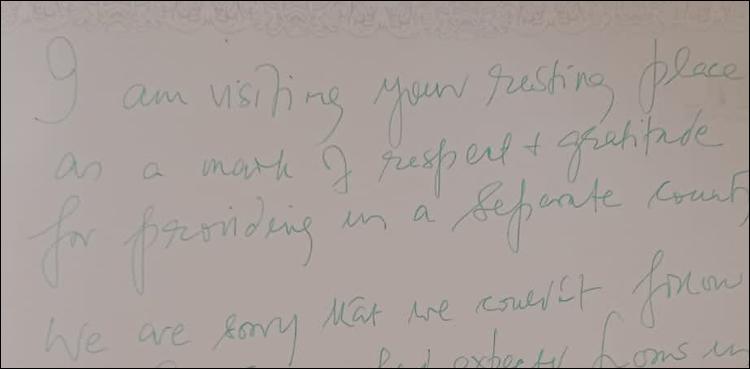 I am visiting your resting place
as a mark of respect + gratitude
for providing us a separate count
We are sorry that we couldn't follow
expects from us